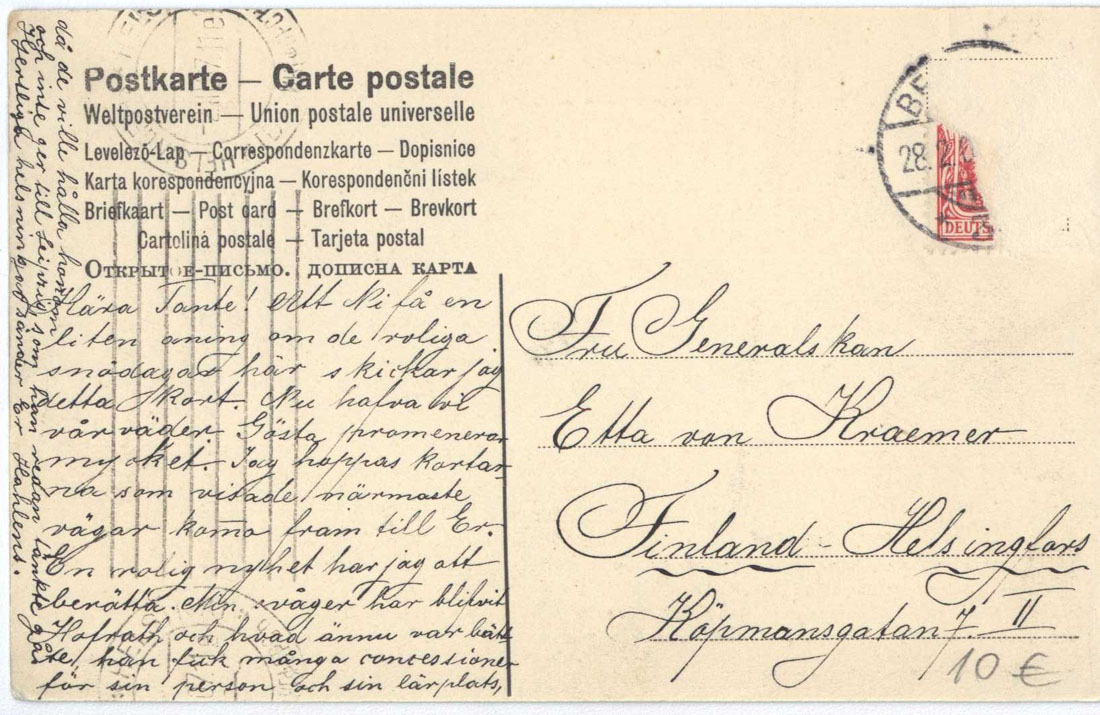 Postkarte — Carte postale
Weltpostverein — Union postale universelle
Levelező-Lap — Correspondenzkarte — Dopisnice
Karta korespondencyjna — Korespondenční lístek
Briefkaart — Post card — Brefkort — Brevkort
Cartolina postale — Tarjeta postal
Открытое-письмо. дописна карта
Kära Tante! Att Ni få en
liten aning om de roliga
snödagar här skickar jag
detta Kort. Nu hafva vi
vårväder. Gösta promenerar
mycket. Jag hoppas kortar-
na som visade närmaste
vägar komma fram till Er.
En rolig nyhet har jag att
berätta. Min svåger har blifvit
Hofrath och hvad ännu var bätt
re, han fick många concessioner
för sin person och sin lärplats,
då de ville hålla honom
och inte ger till Leipzig som han redan tänkte gå.
Hertliga helsningar sänder Er
28.2
DEUTS
Fru Generalskan
Etta von Kraemer
Finland - Helsingfors
Köpmansgatan 7. II
10 €